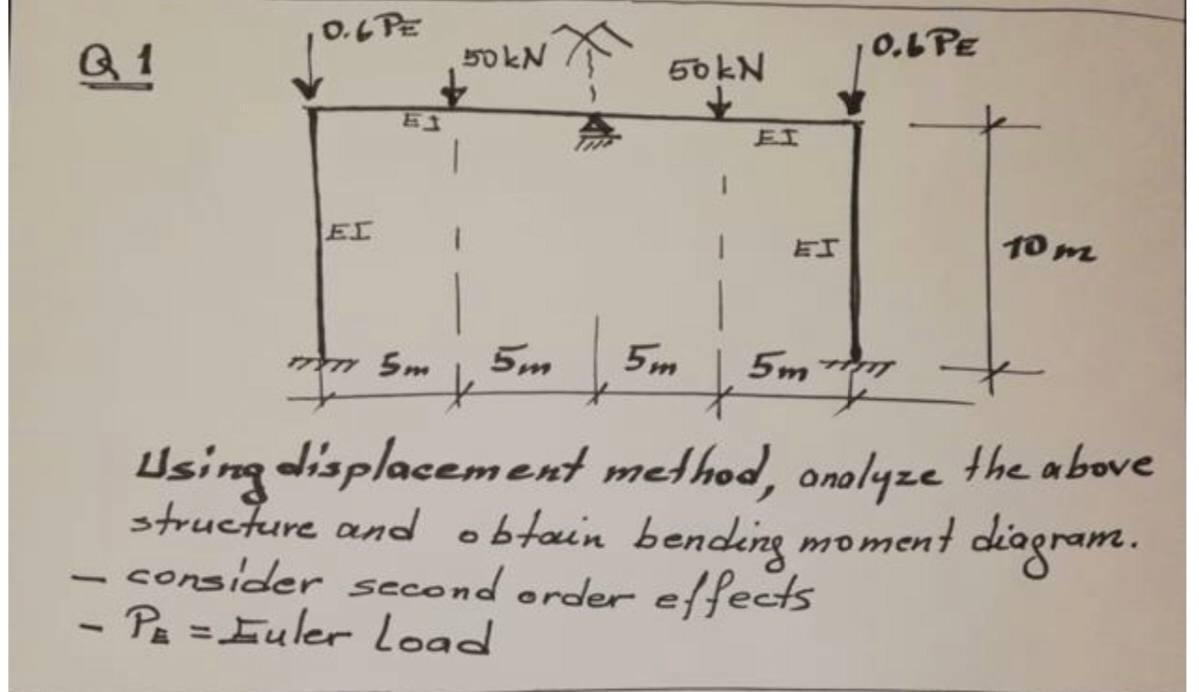 Q1
0.6PE
50kN
50kN
0.6PE
EI
EI
EI
EI
10m
5m
5m
5m
5m
Using displacement method, analyze the above
structure and obtain bending moment diagram.
- consider second order effects
- PE = Euler Load